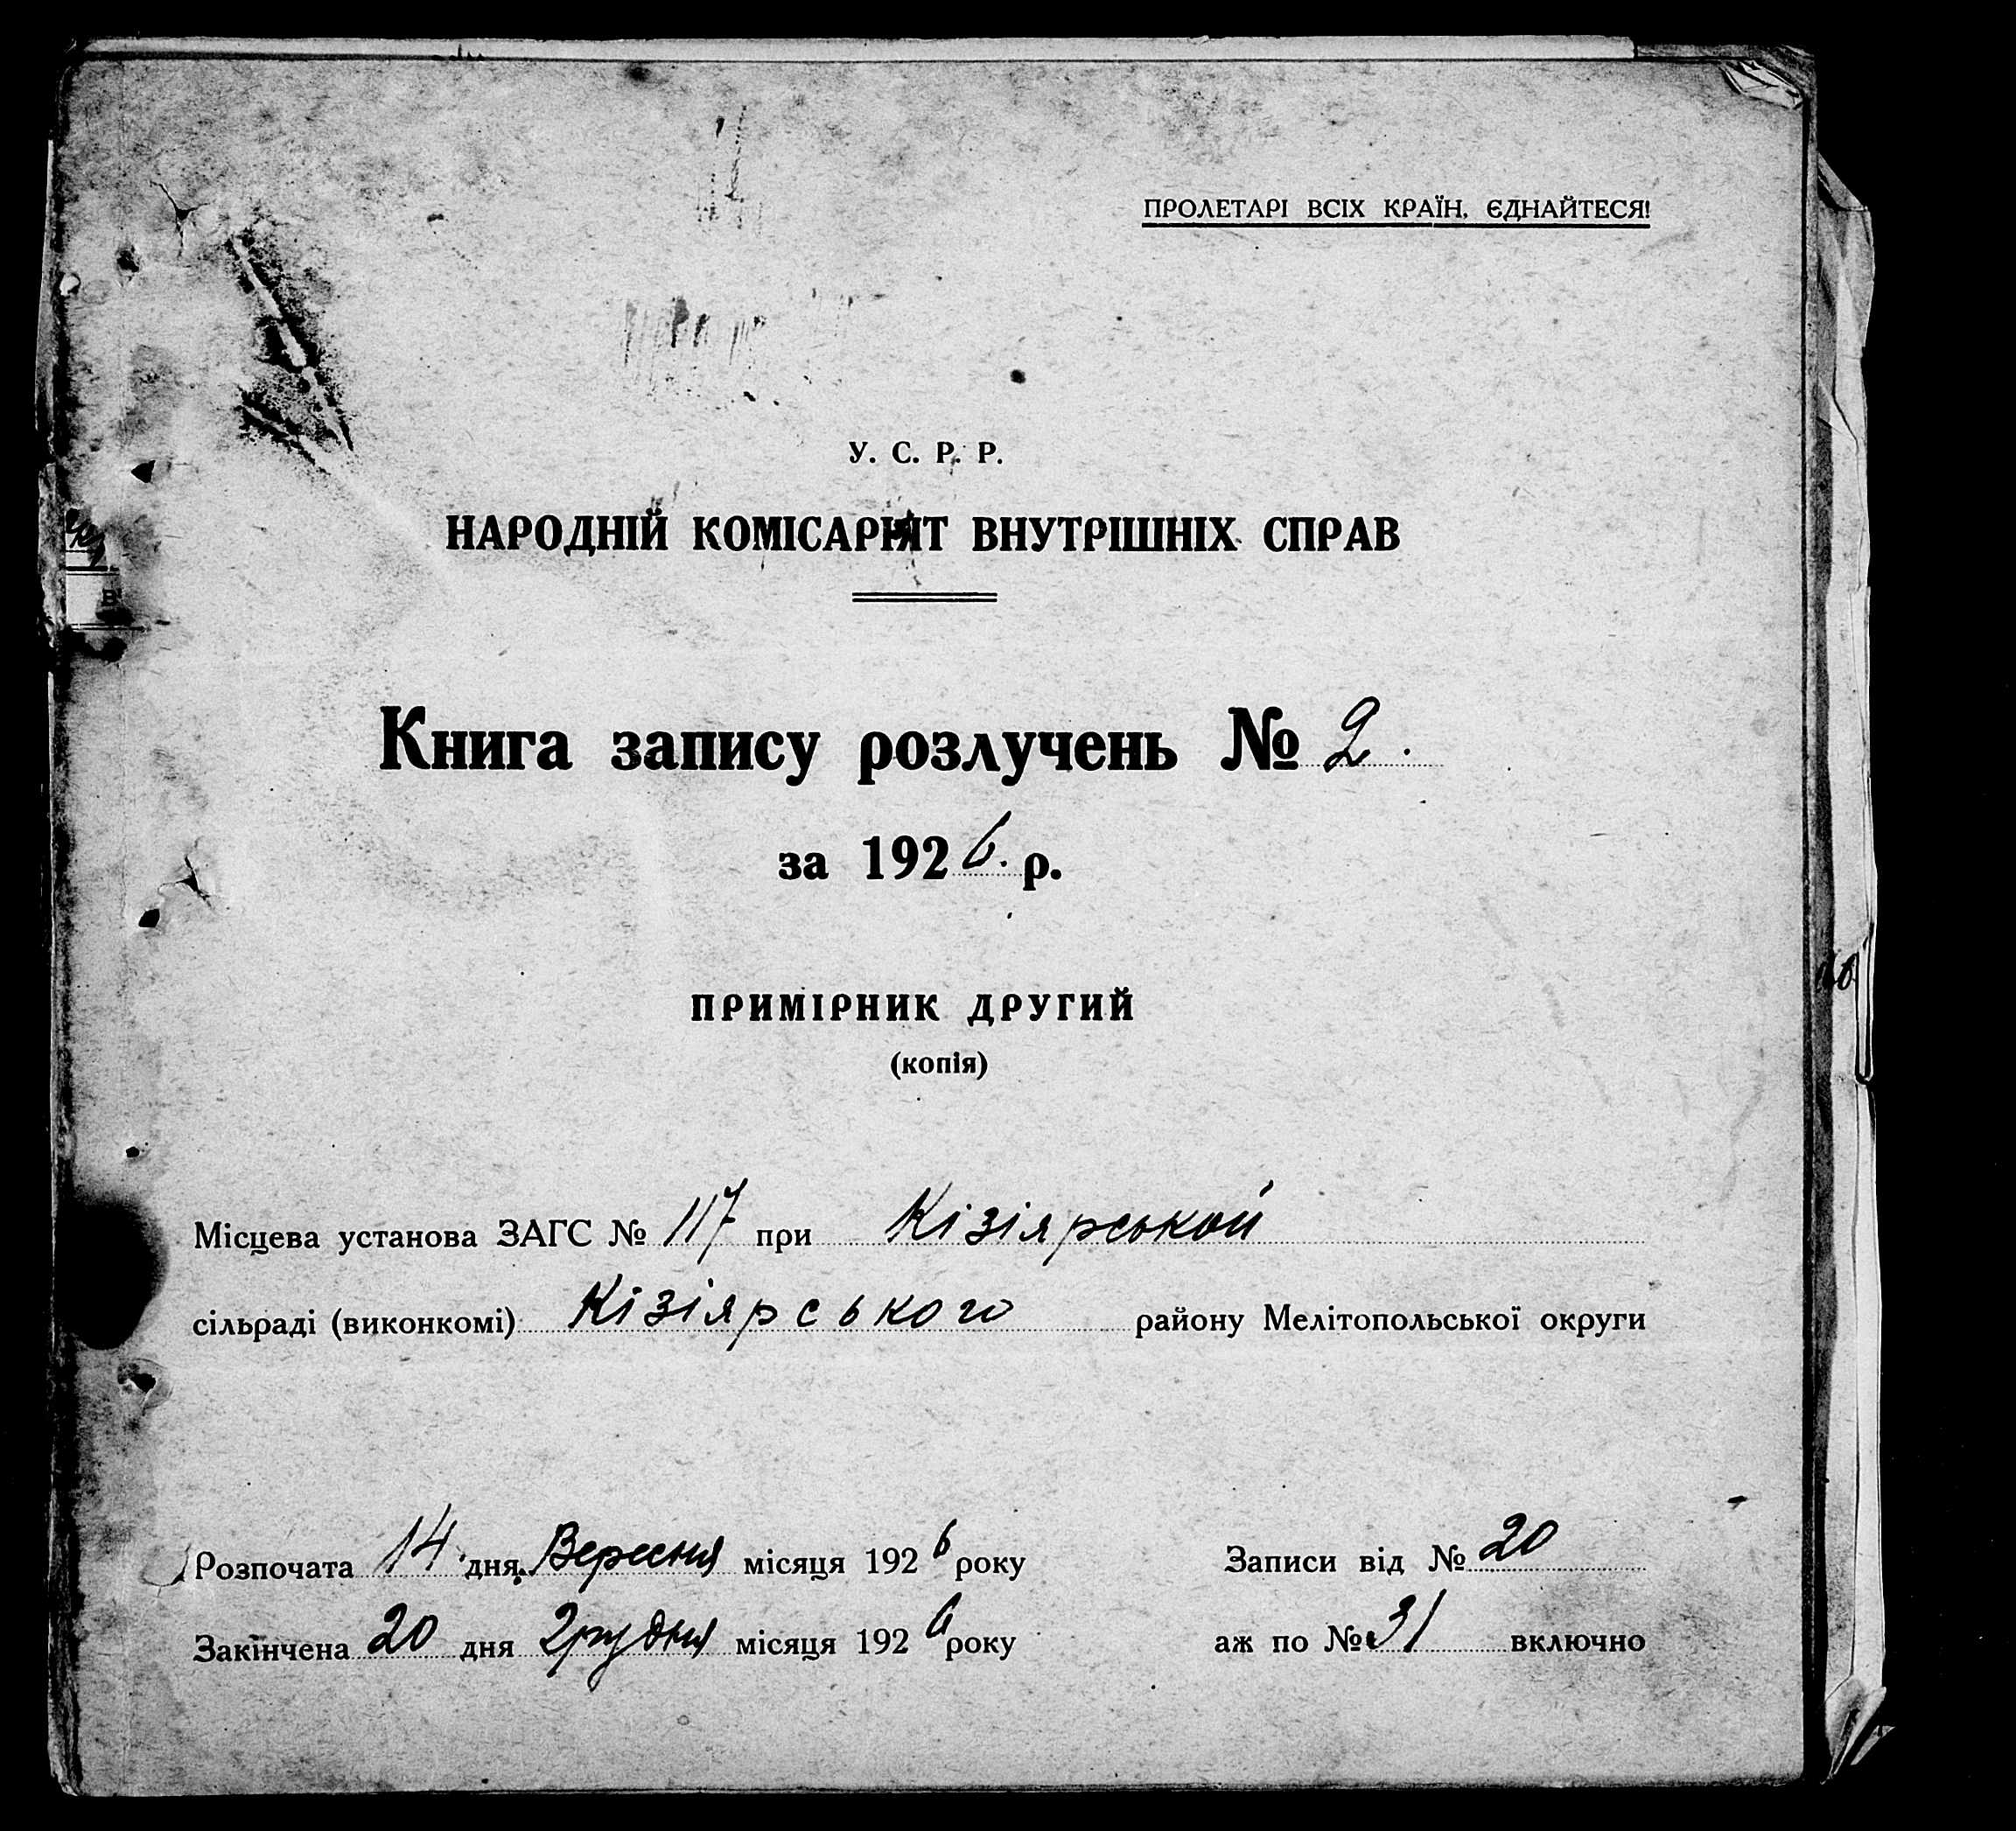 ПРОЛЕТАРІ ВСІХ КРАЇН, ЄДНАЙТЕСЯ!
У. С. Р. Р.
НАРОДНІЙ КОМІСАРІЯТ ВНУТРІШНІХ СПРАВ
Книга запису розлучень № 2.
за 1926. р.
ПРИМІРНИК ДРУГИЙ
(копія)
Місцева установа ЗАГС № 117 при Кізіярськой
сільраді (виконкомі) Кізіярського району Мелітопольської округи
Розпочата 14 дня Вересня місяця 1926 року Записи від № 20
Закінчена 20 дня Грудня місяця 1926 року аж по № 31 включно